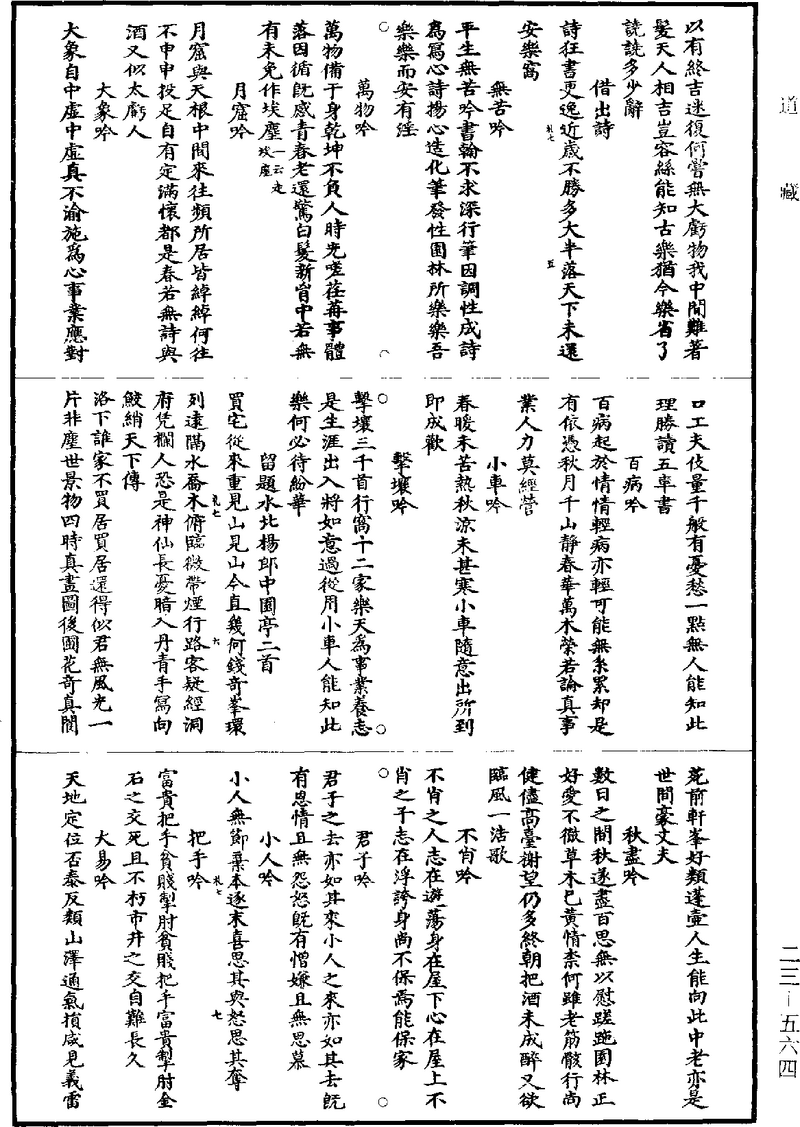 道藏
以有終吉迷復何嘗無大虧物我中間難著
髮天人相吉豈容絲能知古樂猶今樂省了
譊譊多少辭
借出詩
詩狂書更逸近歲不勝多大半落天下未還
安樂窩
無苦吟
平生無苦吟書翰不求深行筆因調性成詩
爲寫心詩揚心造化筆發性園林所樂樂吾
樂樂而安有淫
萬物吟
萬物備于身乾坤不負人時光嗟荏苒事體
落因循旣感青春老還驚白髮新胷中若無
有未免作埃塵一云走埃塵
月窟吟
月窟與天根中間來往頻所居皆綽綽何往
不申申投足自有定滿懷都是春若無詩與
酒又似太虧人
大象吟
大象自中虛中虛真不渝施爲心事業應對
口工夫伎量千般有憂愁一點無人能知此
理勝讀五車書
百病吟
百病起於情情輕病亦輕可能無系累却是
有依憑秋月千山靜春華萬木榮若論真事
業人力莫經營
小車吟
春暖未苦熱秋涼未甚寒小車隨意出所到
即成歡
擊壤吟
擊壤三千首行窩十二家樂天爲事業養志
是生涯出入將如意過從用小車人能知此
樂何必待紛華
留題水北楊郎中園亭二首
買宅從來重見山見山今直幾何錢奇峯環
列遠隔水喬木俯臨微帶煙行路客疑經洞
府凭欄人恐是神仙長憂暗入丹青手寫向
鮫綃天下傳
洛下誰家不買居買居還得似君無風光一
片非塵世景物四時真畫圖後圃花奇真閬
苑前軒峯好類蓬壺人生能向此中老亦是
世間豪丈夫
秋盡吟
數日之間秋遂盡百思無以慰蹉跎園林正
好愛不徹草木已黃情柰何雖老筋骸行尚
健儘高臺榭望仍多終朝把酒未成醉又欲
臨風一浩歌
不肖吟
不肖之人志在遊蕩身在屋下心在屋上不
肖之子志在浮誇身尚不保焉能保家
君子吟
君子之去亦如其來小人之來亦如其去旣
有恩情且無怨怒旣有憎嫌且無思慕
小人吟
小人無節棄本逐末喜思其與怒思其奪
把手吟
富貴把手貧賤掣肘貧賤把手富貴掣肘金
石之交死且不朽市井之交自難長久
大易吟
天地定位否泰反類山澤通氣損咸見義雷
二三—五六四